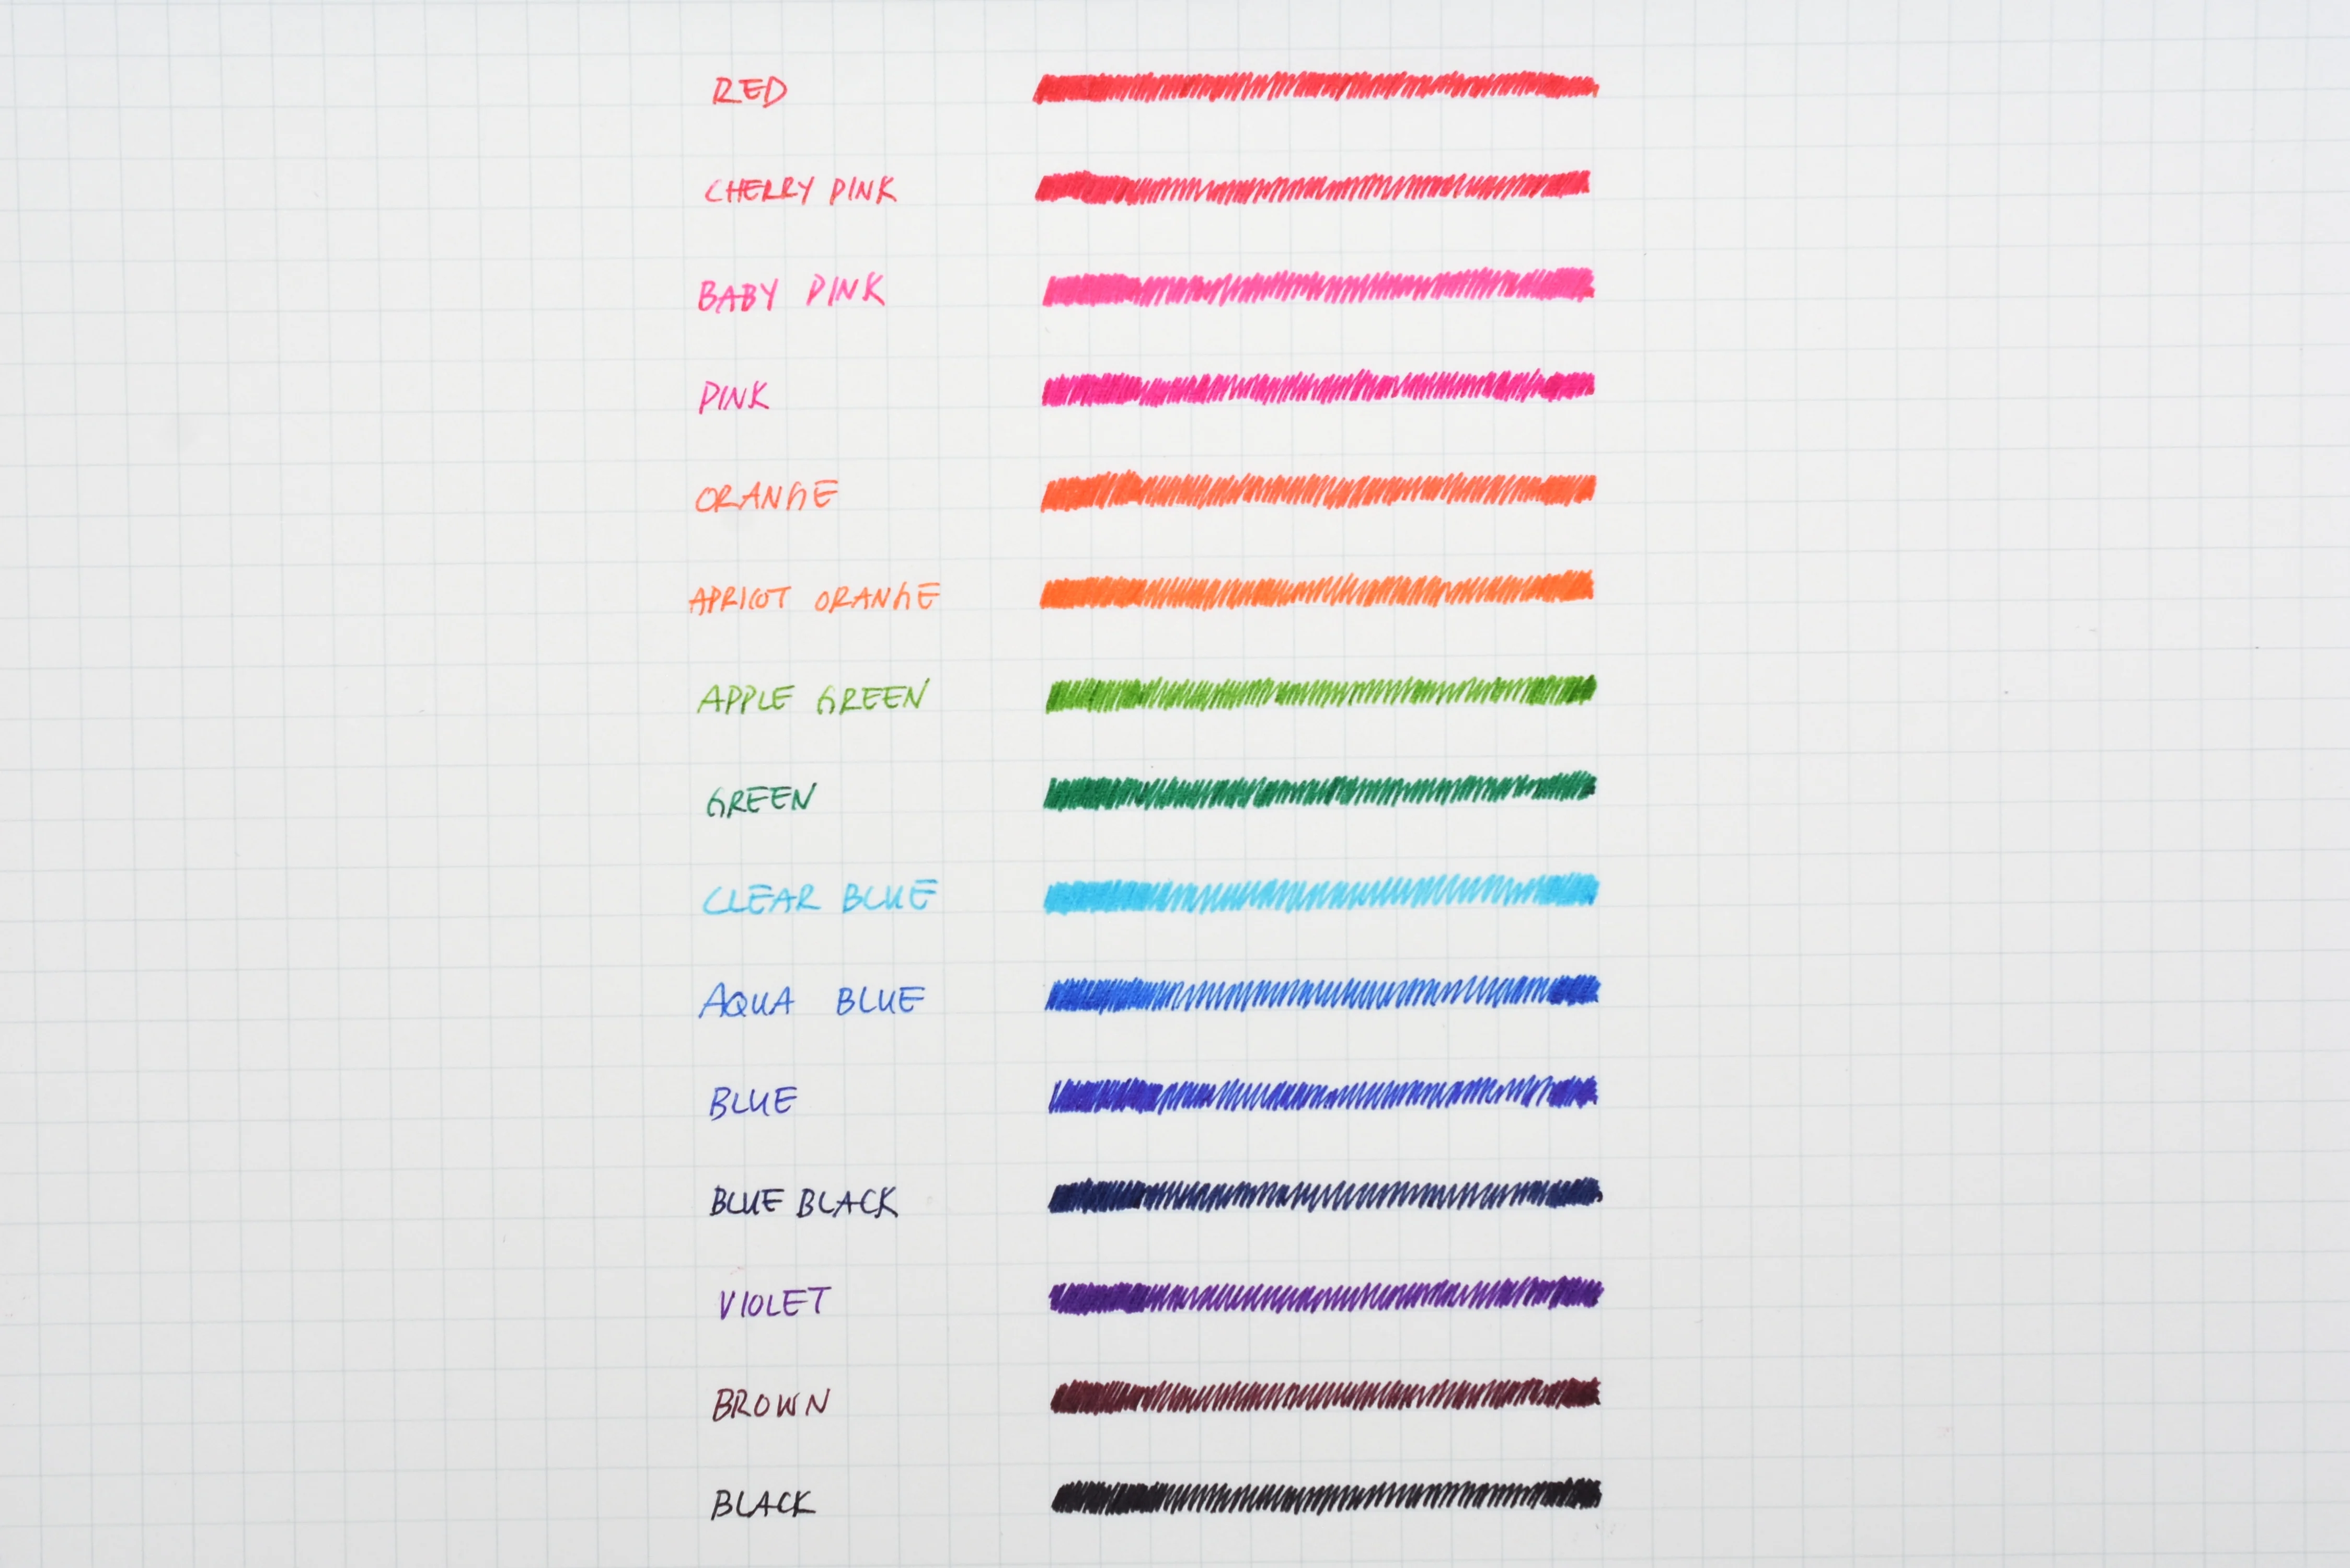 RED
CHERRY PINK
BABY PINK
PINK
ORANGE
APRICOT ORANGE
APPLE GREEN
GREEN
CLEAR BLUE
AQUA BLUE
BLUE
BLUE BLACK
VIOLET
BROWN
BLACK